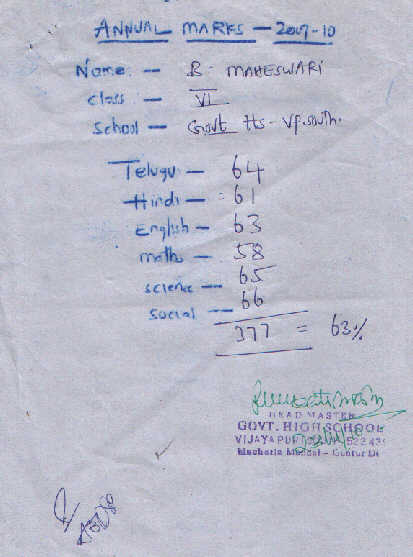 ANNUAL MARKS — 2009-10
Name — B. MAHESWARI
class — VI
School — Govt HS - VP. South.
Telugu — 64
Hindi — 61
English — 63
maths — 58
science — 65
social — 66
377 = 63%
HEAD MASTER
GOVT. HIGH SCHOOL
VIJAYAPURI 522 439
Macherla Mandal - Guntur Dt